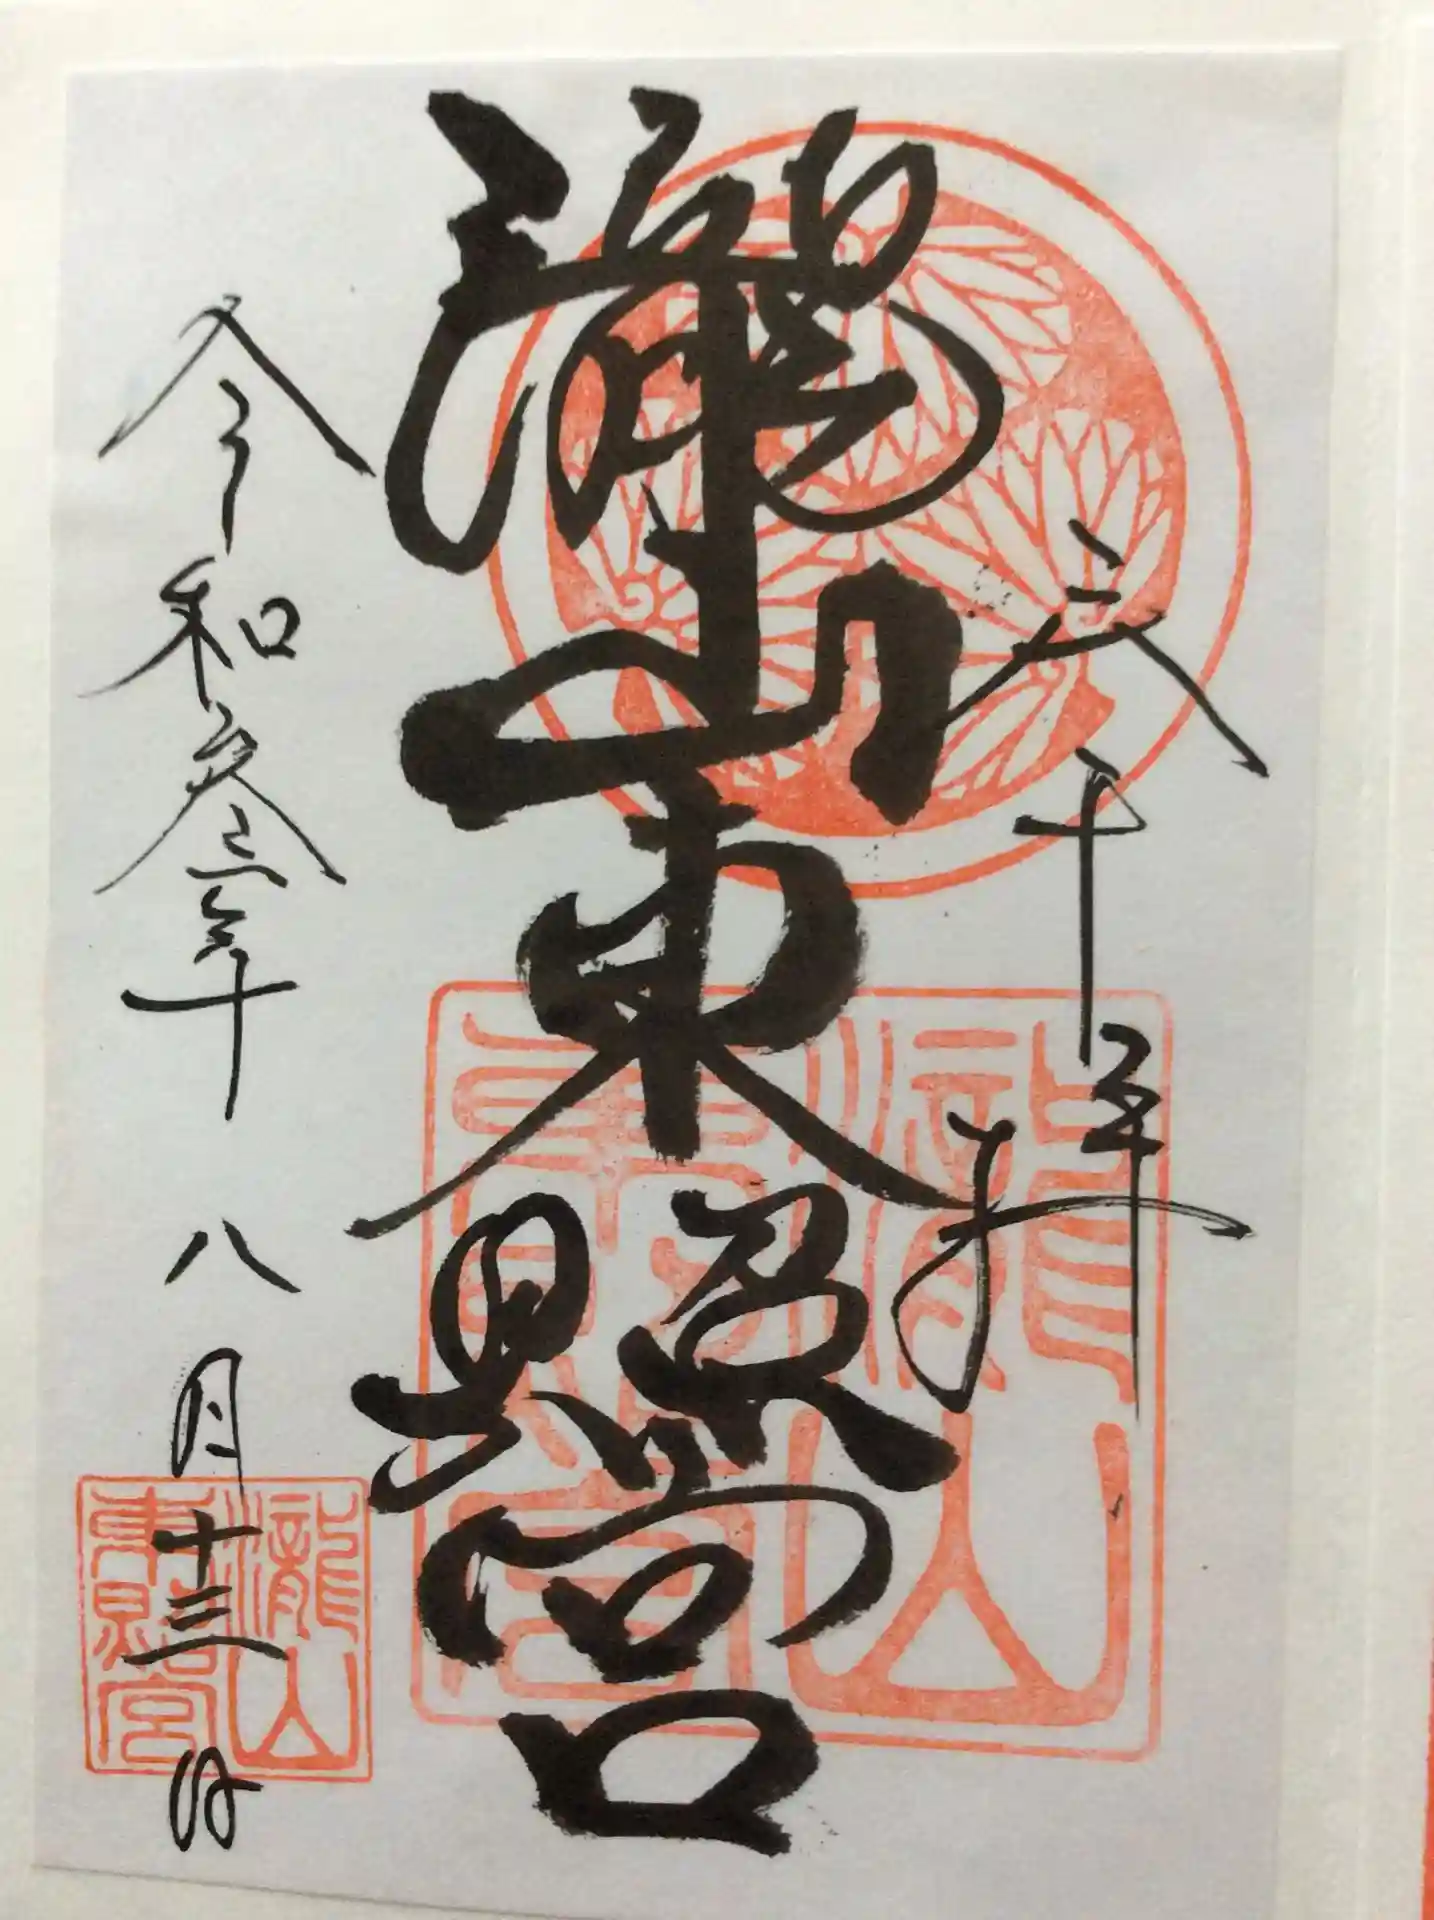 奉拝
瀧山東照宮
令和参年 八月十三日
瀧山
東照宮
瀧山
東照宮